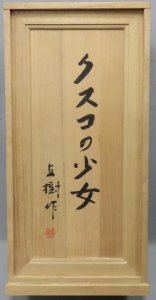 クスコの少女
貞樹作